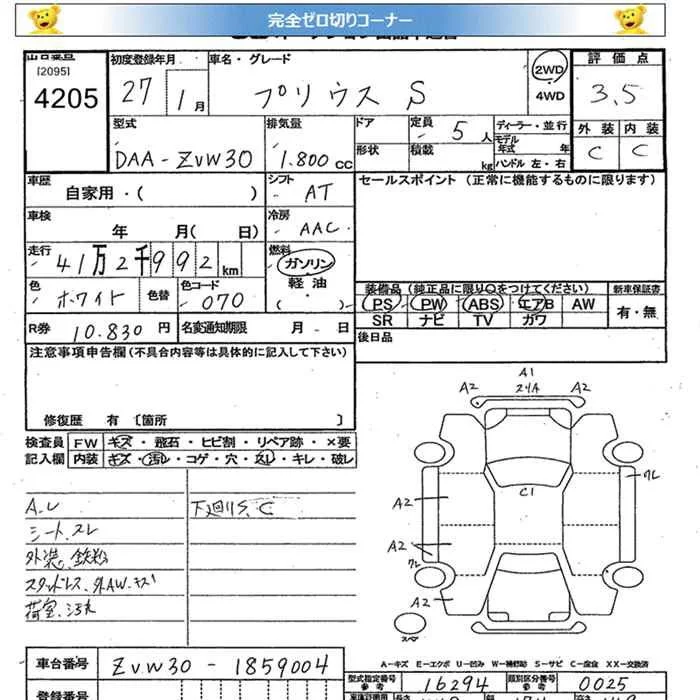 完全ゼロ切りコーナー
[2095]
4205
初度登録年月
27 1月
車名・グレード
プリウス S
2WD
4WD
評価点
3.5
外装 内装
C C
型式
DAA-ZVW30
排気量
1.800 cc
ドア
形状
定員 5人
積載 kg
ディーラー・並行
モデル年式 年
ハンドル 左・右
車歴
自家用・( )
シフト
AT
セールスポイント (正常に機能するものに限ります)
車検
年 月( 日)
冷房
AAC
走行
41万2千992km
燃料
ガソリン
軽油
( )
色
ホワイト
色替
色コード
070
装備品(純正品に限り○をつけてください)
新車保証書
PS PW ABS エアB AW
SR ナビ TV カワ
有・無
R券 10.830円
名変通知期限 月 日
後日品
注意事項申告欄(不具合内容等は具体的に記入して下さい)
修復歴 有 〔箇所 〕
検査員
記入欄
FW キズ・飛石・ヒビ割・リペア跡・×要
内装 キズ・汚レ・コゲ・穴・スレ・キレ・破レ
シート、スレ
外装、鉄粉
スタッドレス、外AW、キズ
荷室、汚れ
下廻りS、C
A1
A2 A2
C1
A2
A2
A2
クレ
クレ
スペア
A-キズ E-エクボ U-凹み W-補修跡 S-サビ C-腐食 XX-交換済
車台番号 ZVW30-1859004
登録番号
型式指定番号
参考
16294
類別区分番号
参考
0025